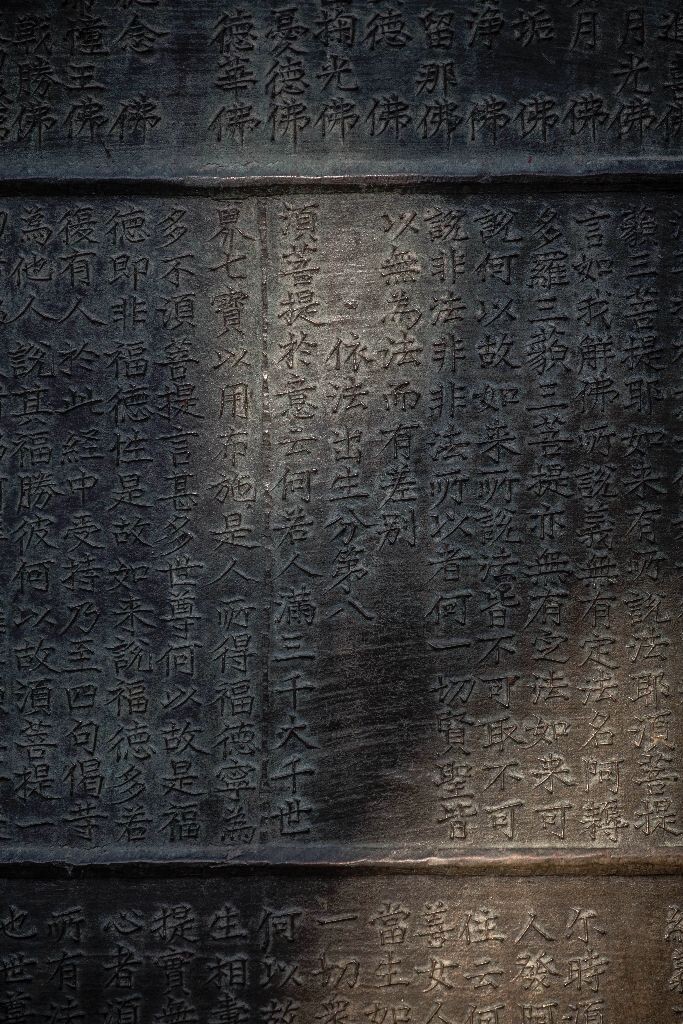 善佛
月光佛
月佛
垢佛
淨佛
留那佛
德佛
掬光佛
憂德佛
德華佛
念佛
幢王佛
戰勝佛
藐三菩提耶如来有所說法耶湏菩提
言如我解佛所說義無有定法名阿耨
多羅三藐三菩提亦無有定法如来可
說何以故如来所說法皆不可取不可
說非法非非法所以者何一切賢聖皆
以無為法而有差别
依法出生分第八
湏菩提於意云何若人滿三千大千世
界七寶以用布施是人所得福德寧為
多不湏菩提言甚多世尊何以故是福
德即非福德性是故如来說福德多若
復有人於此経中受持乃至四句偈等
為他人說其福勝彼何以故湏菩提一
尔時湏
人發阿
住云何
善女人
當生如
一切衆
何以故
生相壽
提實無
心者湏
所有法
也世尊